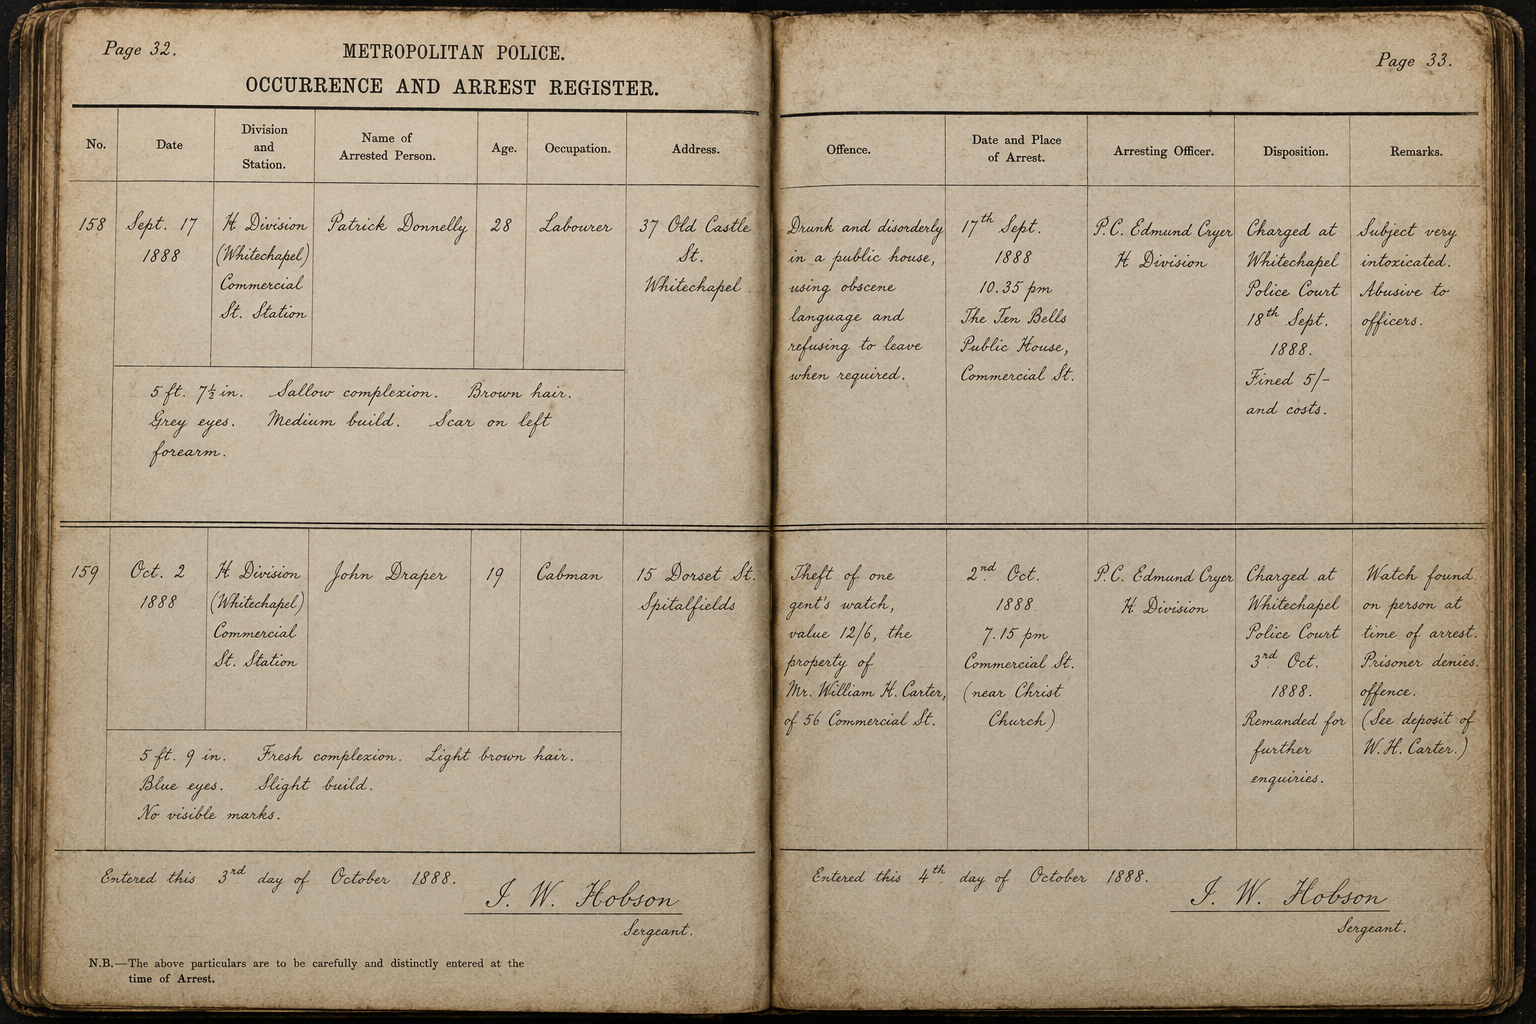 Page 32.
METROPOLITAN POLICE.
OCCURRENCE AND ARREST REGISTER.
No.
Date
Division
and
Station.
Name of
Arrested Person.
Age.
Occupation.
Address.
158
Sept. 17
1888
H Division
(Whitechapel)
Commercial
St. Station
Patrick Donnelly
28
Labourer
37 Old Castle
St.
Whitechapel
5 ft. 7½ in. Sallow complexion. Brown hair.
Grey eyes. Medium build. Scar on left
forearm.
159
Oct. 2
1888
H Division
(Whitechapel)
Commercial
St. Station
John Draper
19
Cabman
15 Dorset St.
Spitalfields
5 ft. 9 in. Fresh complexion. Light brown hair.
Blue eyes. Slight build.
No visible marks.
Entered this 3rd day of October 1888.
J. W. Hobson
Sergeant.
N.B.—The above particulars are to be carefully and distinctly entered at the
time of Arrest.
Page 33.
Offence.
Date and Place
of Arrest.
Arresting Officer.
Disposition.
Remarks.
Drunk and disorderly
in a public house,
using obscene
language and
refusing to leave
when required.
17th Sept.
1888
10.35 pm
The Ten Bells
Public House,
Commercial St.
P.C. Edmund Cryer
H Division
Charged at
Whitechapel
Police Court
18th Sept.
1888.
Fined 5/-
and costs.
Subject very
intoxicated.
Abusive to
officers.
Theft of one
gent's watch,
value 12/6, the
property of
Mr. William H. Carter,
of 56 Commercial St.
2nd Oct.
1888
7.15 pm
Commercial St.
(near Christ
Church)
P.C. Edmund Cryer
H Division
Charged at
Whitechapel
Police Court
3rd Oct.
1888.
Remanded for
further
enquiries.
Watch found
on person at
time of arrest.
Prisoner denies
offence.
(See deposit of
W.H. Carter.)
Entered this 4th day of October 1888.
J. W. Hobson
Sergeant.